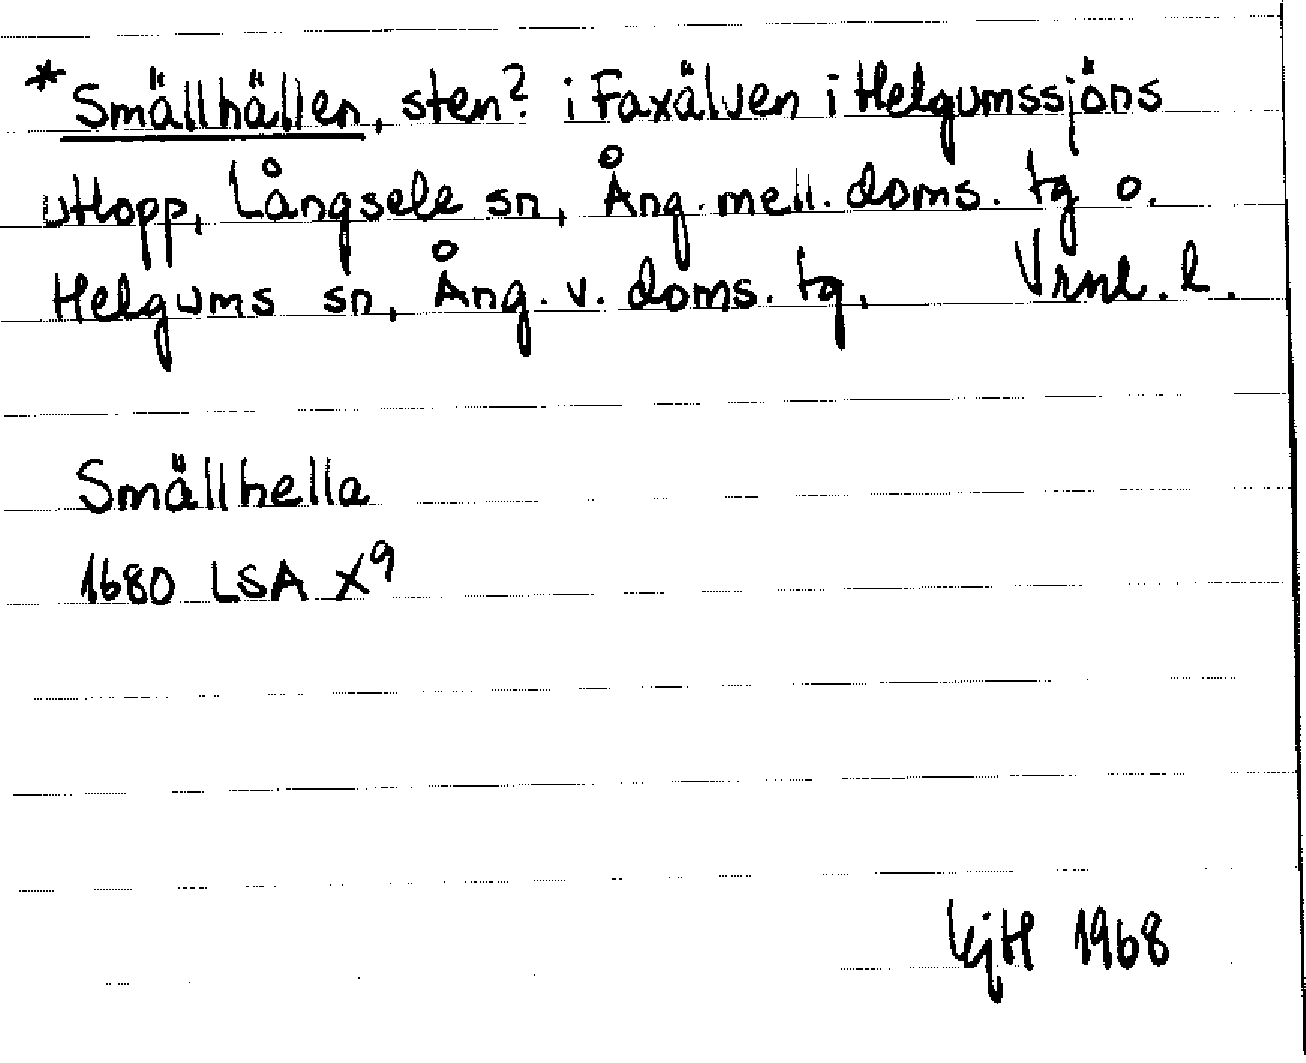 *Smällhällen, sten? i Faxälven i Helgumssjöns
utlopp, Långsele sn, Ång. mell. doms. tg o.
Helgums sn, Ång. v. doms. tg, Vrnl. l.
Smällhella
1680 LSA X9
KjH 1968